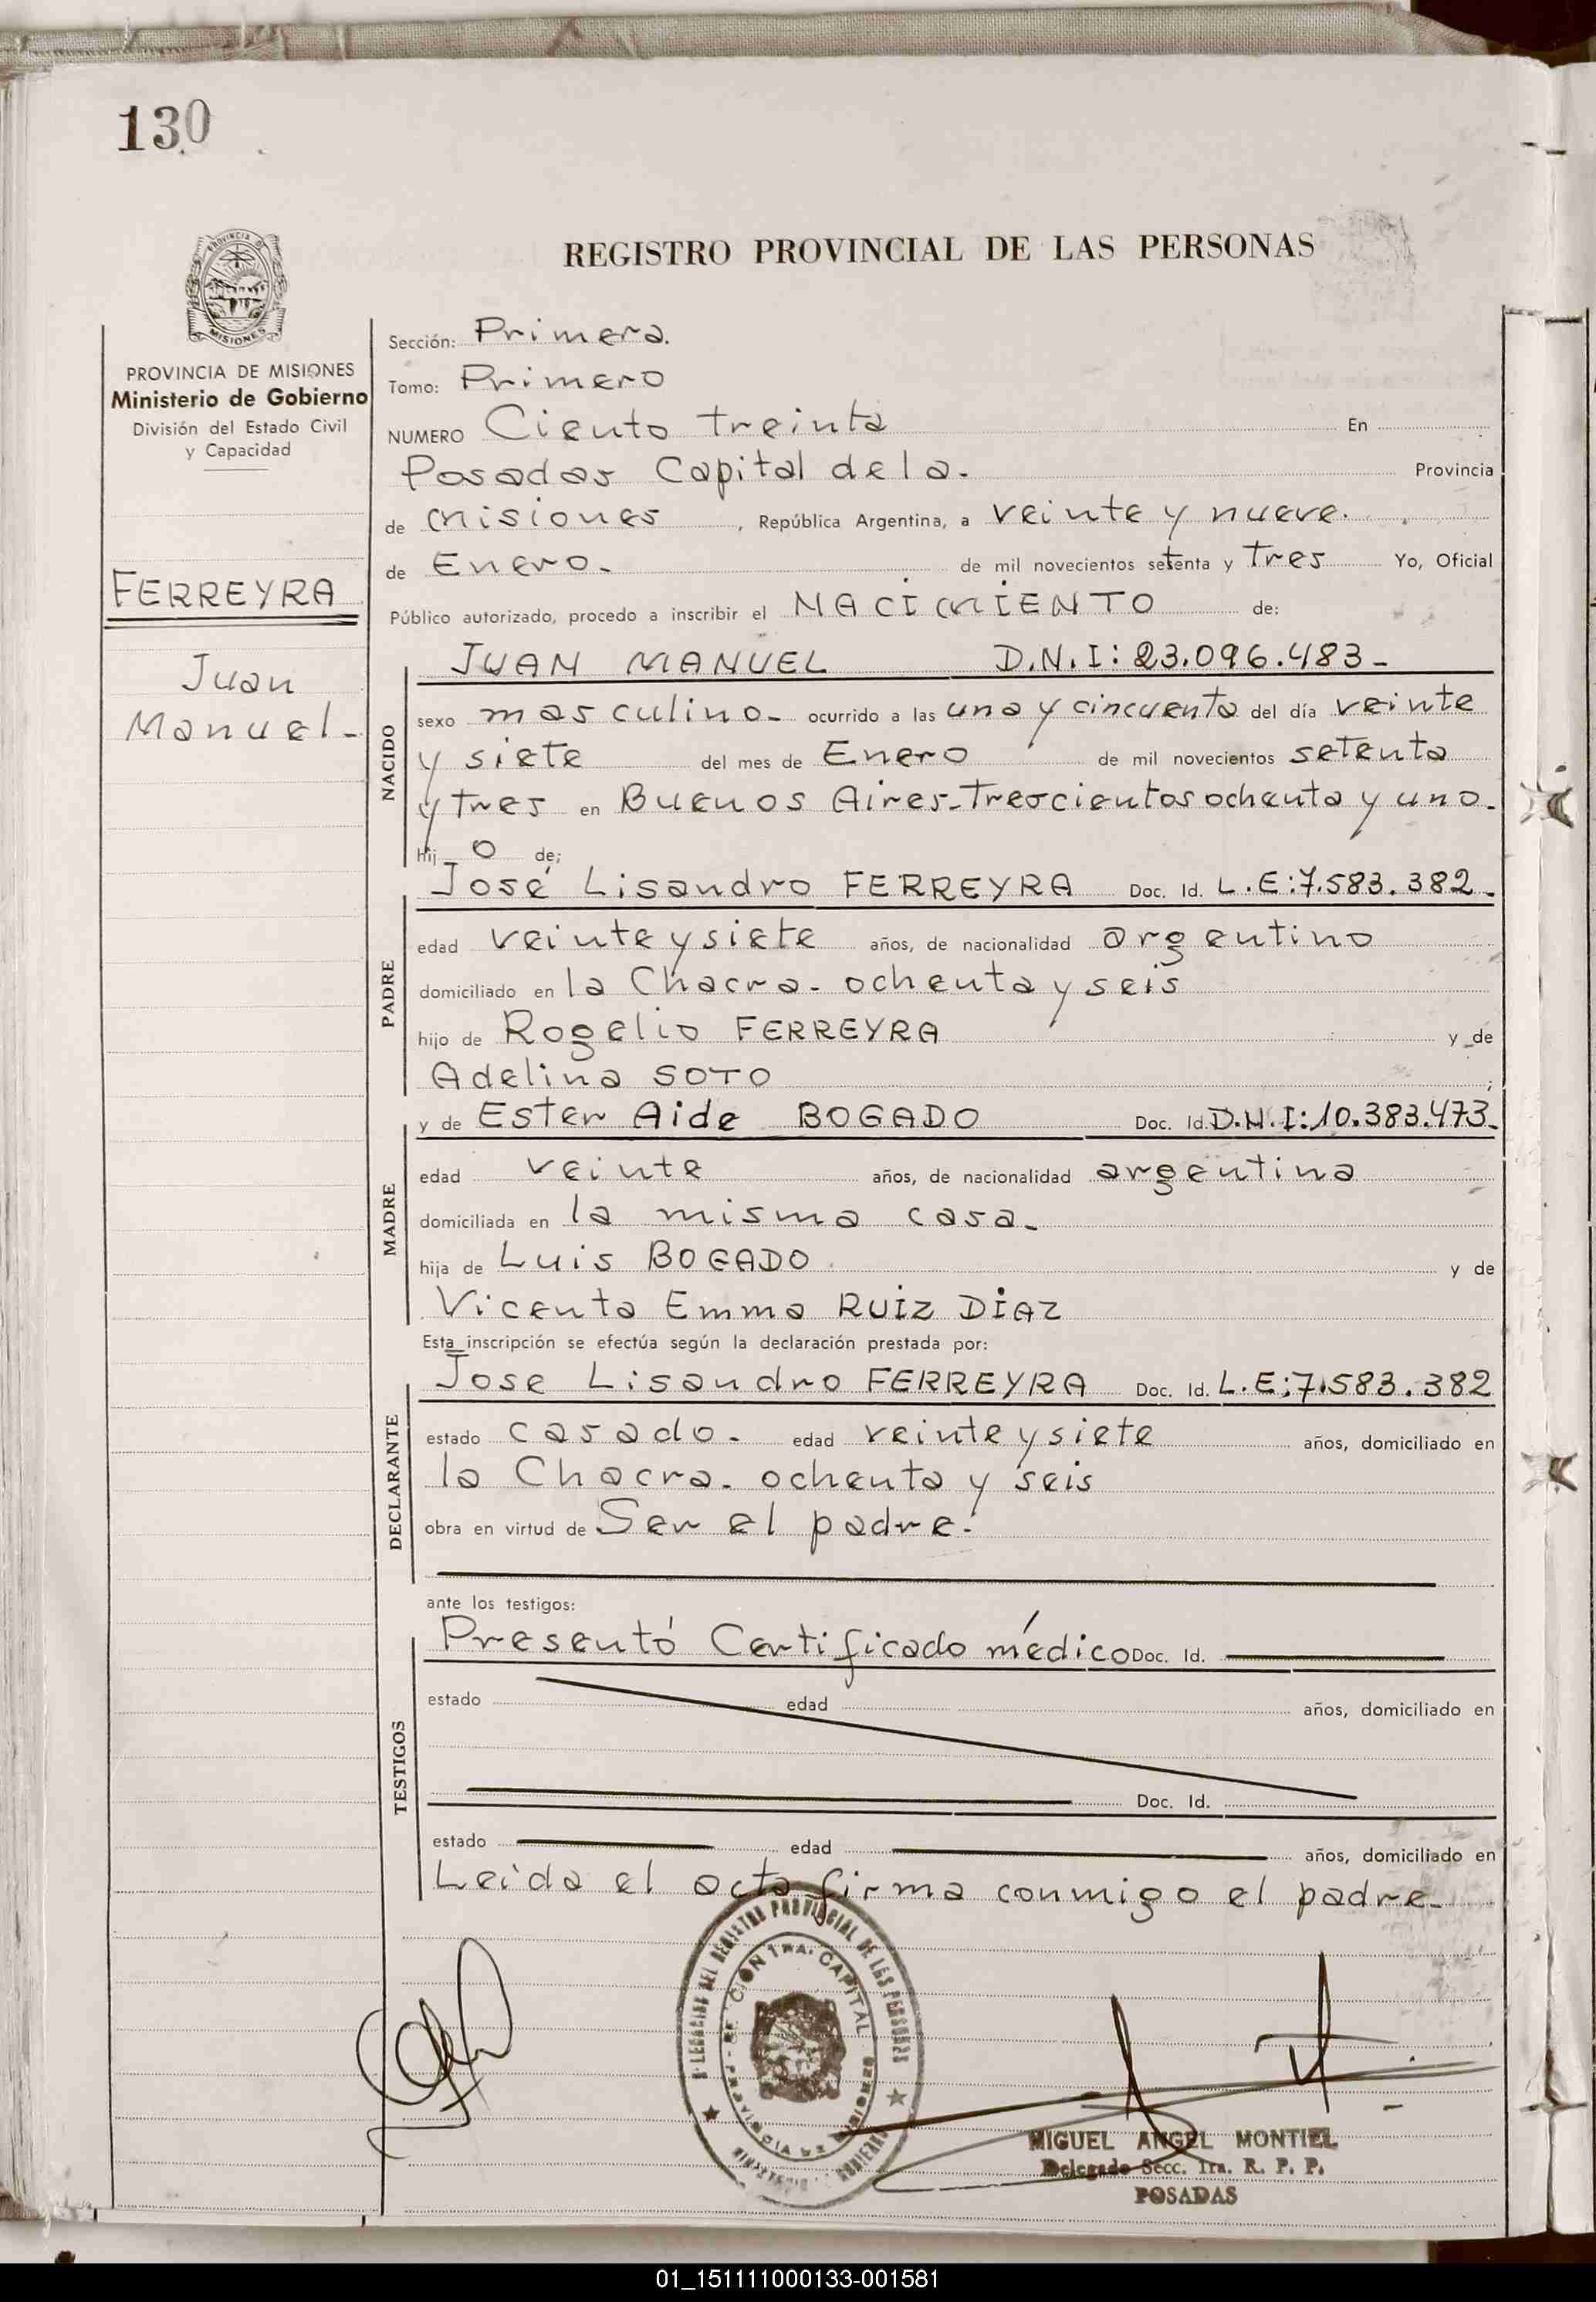 130
PROVINCIA DE
MISIONES
REGISTRO PROVINCIAL DE LAS PERSONAS
PROVINCIA DE MISIONES
Ministerio de Gobierno
División del Estado Civil
y Capacidad
FERREYRA
Juan
Manuel-
Sección: Primera.
Tomo: Primero
NUMERO Ciento treinta En
Posadas Capital de la. Provincia
de Misiones, República Argentina, a veinte y nueve.
de Enero. de mil novecientos setenta y tres Yo, Oficial
Público autorizado, procedo a inscribir el NACIMIENTO de:
NACIDO
JUAN MANUEL D.N.I: 23.096.483-
sexo masculino- ocurrido a las una y cincuenta del día veinte
y siete del mes de Enero de mil novecientos setenta
y tres en Buenos Aires-Trescientos ochenta y uno.
hij o de;
PADRE
José Lisandro FERREYRA Doc. Id. L.E:7.583.382-
edad veinte y siete años, de nacionalidad argentino
domiciliado en la Chacra- ochenta y seis
hijo de Rogelio FERREYRA y de
Adelina SOTO ;
MADRE
y de Ester Aide BOGADO Doc. Id. D.N.I:10.383.473-
edad veinte años, de nacionalidad argentina
domiciliada en la misma casa-
hija de Luis BOGADO y de
Vicenta Emma RUIZ DIAZ
Esta inscripción se efectúa según la declaración prestada por:
DECLARANTE
Jose Lisandro FERREYRA Doc. Id. L.E:7.583.382
estado casado- edad veinte y siete años, domiciliado en
la Chacra- ochenta y seis
obra en virtud de Ser el padre.
ante los testigos:
TESTIGOS
Presentó Certificado médico Doc. Id.
estado edad años, domiciliado en
Doc. Id.
estado edad años, domiciliado en
Leida el acta firma conmigo el padre-
REGISTRO PROVINCIAL DE LAS PERSONAS
CAPITAL
PROVINCIA DE
MIGUEL ANGEL MONTIEL
Delegado Secc. 1ra. R. P. P.
POSADAS
01_151111000133-001581